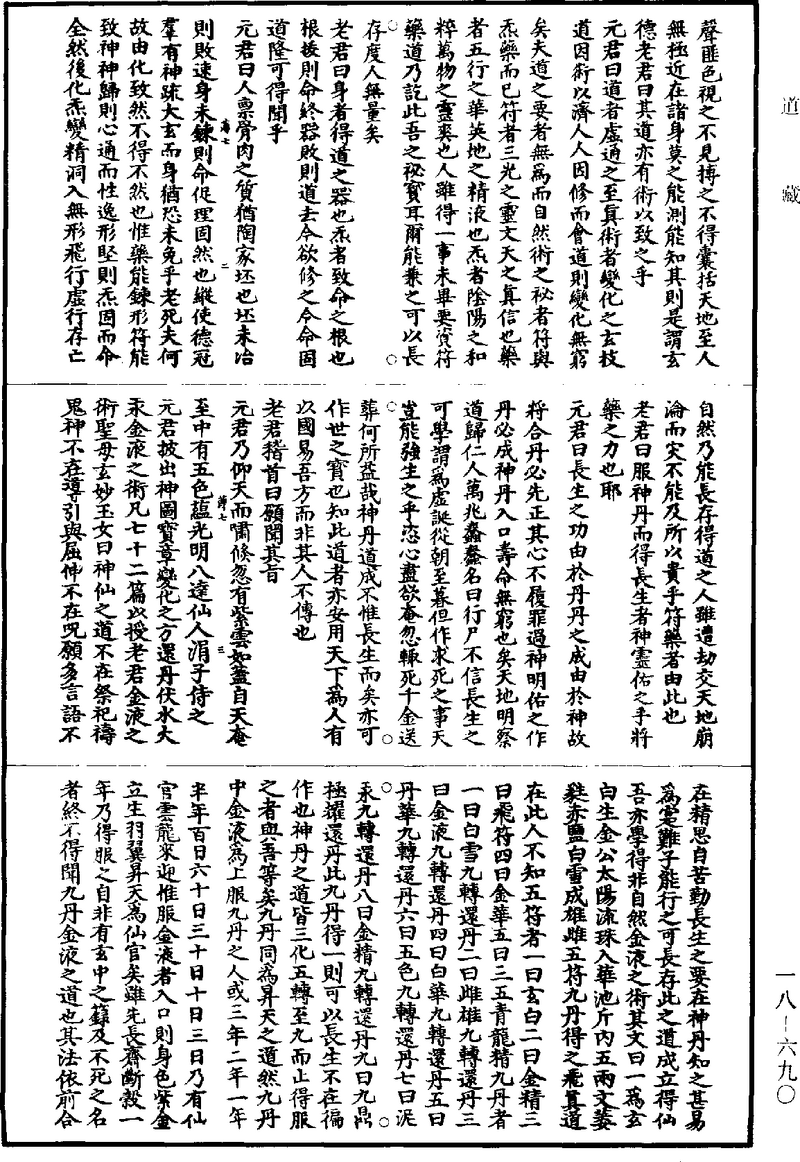 道藏
聲匪色視之不見摶之不得囊括天地至人
無極近在諸身莫之能測能知其則是謂玄
德老君曰其道亦有術以致之乎
元君曰道者虛通之至真術者變化之玄技
道因術以濟人人因修而會道則變化無窮
矣夫道之要者無為而自然術之祕者符與
炁藥而已符者三光之靈文天之真信也藥
者五行之華英地之精液也炁者陰陽之和
粹萬物之靈爽也人雖得一事未畢要資符
藥道乃訖此吾之祕寶耳爾能兼之可以長
存度人無量矣
老君曰身者得道之器也炁者致命之根也
根拔則命終器敗則道去今欲修之令命固
道隆可得聞乎
元君曰人禀骨肉之質猶陶家坯也坯未冶
則敗速身未鍊則命促理固然也縱使德冠
羣有神疏大玄而身猶恐未免乎老死夫何
故由化致然不得不然也惟藥能鍊形符能
致神神歸則心通而性逸形堅則炁固而命
全然後化炁變精洞入無形飛行虛行存亡
自然乃能長存得道之人雖遭劫交天地崩
淪而灾不能及所以貴乎符藥者由此也
老君曰服神丹而得長生者神靈佑之乎將
藥之力也耶
元君曰長生之功由於丹丹之成由於神故
將合丹必先正其心不履罪過神明佑之作
丹必成神丹入口壽命無窮也矣天地明察
道歸仁人萬兆蠢蠢名曰行尸不信長生之
可學謂為虛誕從朝至暮但作求死之事天
豈能強生之乎恣心盡欲奄忽輒死千金送
葬何所益哉神丹道成不惟長生而矣亦可
作世之寶也知此道者亦安用天下為人有
以國易吾方而非其人不傳也
老君稽首曰願聞其旨
元君乃仰天而嘯倏忽有紫雲如蓋自天奄
至中有五色蘊光明八達仙人涓子侍之
元君披出神圖寶章變化之方還丹伏水大
汞金液之術凡七十二篇以授老君金液之
術聖母玄妙玉女曰神仙之道不在祭祀禱
鬼神不在導引與屈伸不在呪願多言語不
在精思自苦勤長生之要在神丹知之甚易
為寔難子能行之可長存此之道成立得仙
吾亦學得非自然金液之術其文曰一為玄
白生金公太陽流珠入華池斤內五兩文蔞
蕤赤鹽白雪成雄雌五符九丹得之飛真道
在此人不知五符者一曰玄白二曰金精三
曰飛符四曰金華五曰三五青龍精九丹者
一曰白雪九轉還丹二曰雌雄九轉還丹三
曰金液九轉還丹四曰白華九轉還丹五曰
丹華九轉還丹六曰五色九轉還丹七曰泥
汞九轉還丹八曰金精九轉還丹九曰九鼎
極耀還丹此九丹得一則可以長生不在徧
作也神丹之道皆三化五轉至九而止得服
之者與吾等矣九丹同為昇天之道然九丹
中金液為上服九丹之人或三年二年一年
半年百日六十日三十日十日三日乃有仙
官雲龍來迎惟服金液者入口則身色紫金
立生羽翼昇天為仙官矣雖先長齋斷穀一
年乃得服之自非有玄中之籙及不死之名
者終不得聞九丹金液之道也其法依前合
薄七
二
薄七
三
一八－六九〇